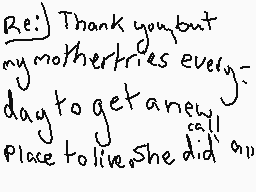 Re:) Thank you, but
my mother tries every-
day to get a new
call
place to live, She did all